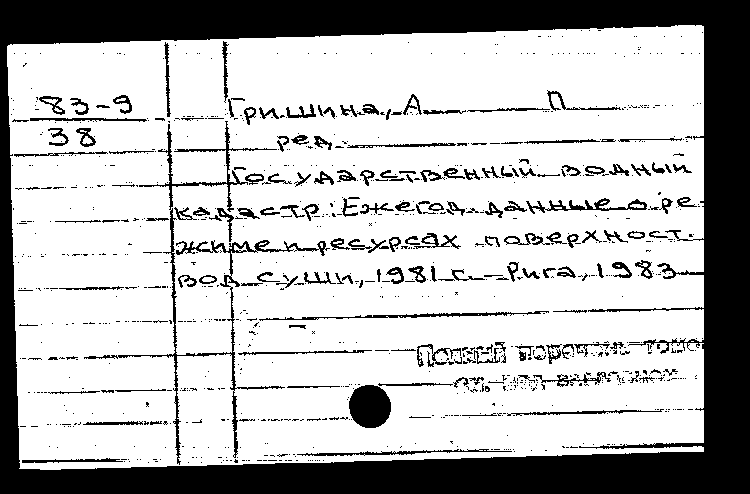 83-9
38
Гришина, А П
ред.
Государственный водный
кадастр: Ежегод. данные о ре-
жиме и ресурсах поверхност.
вод суши, 1981 г. – Рига, 1983
Полный перечень томо
см. под